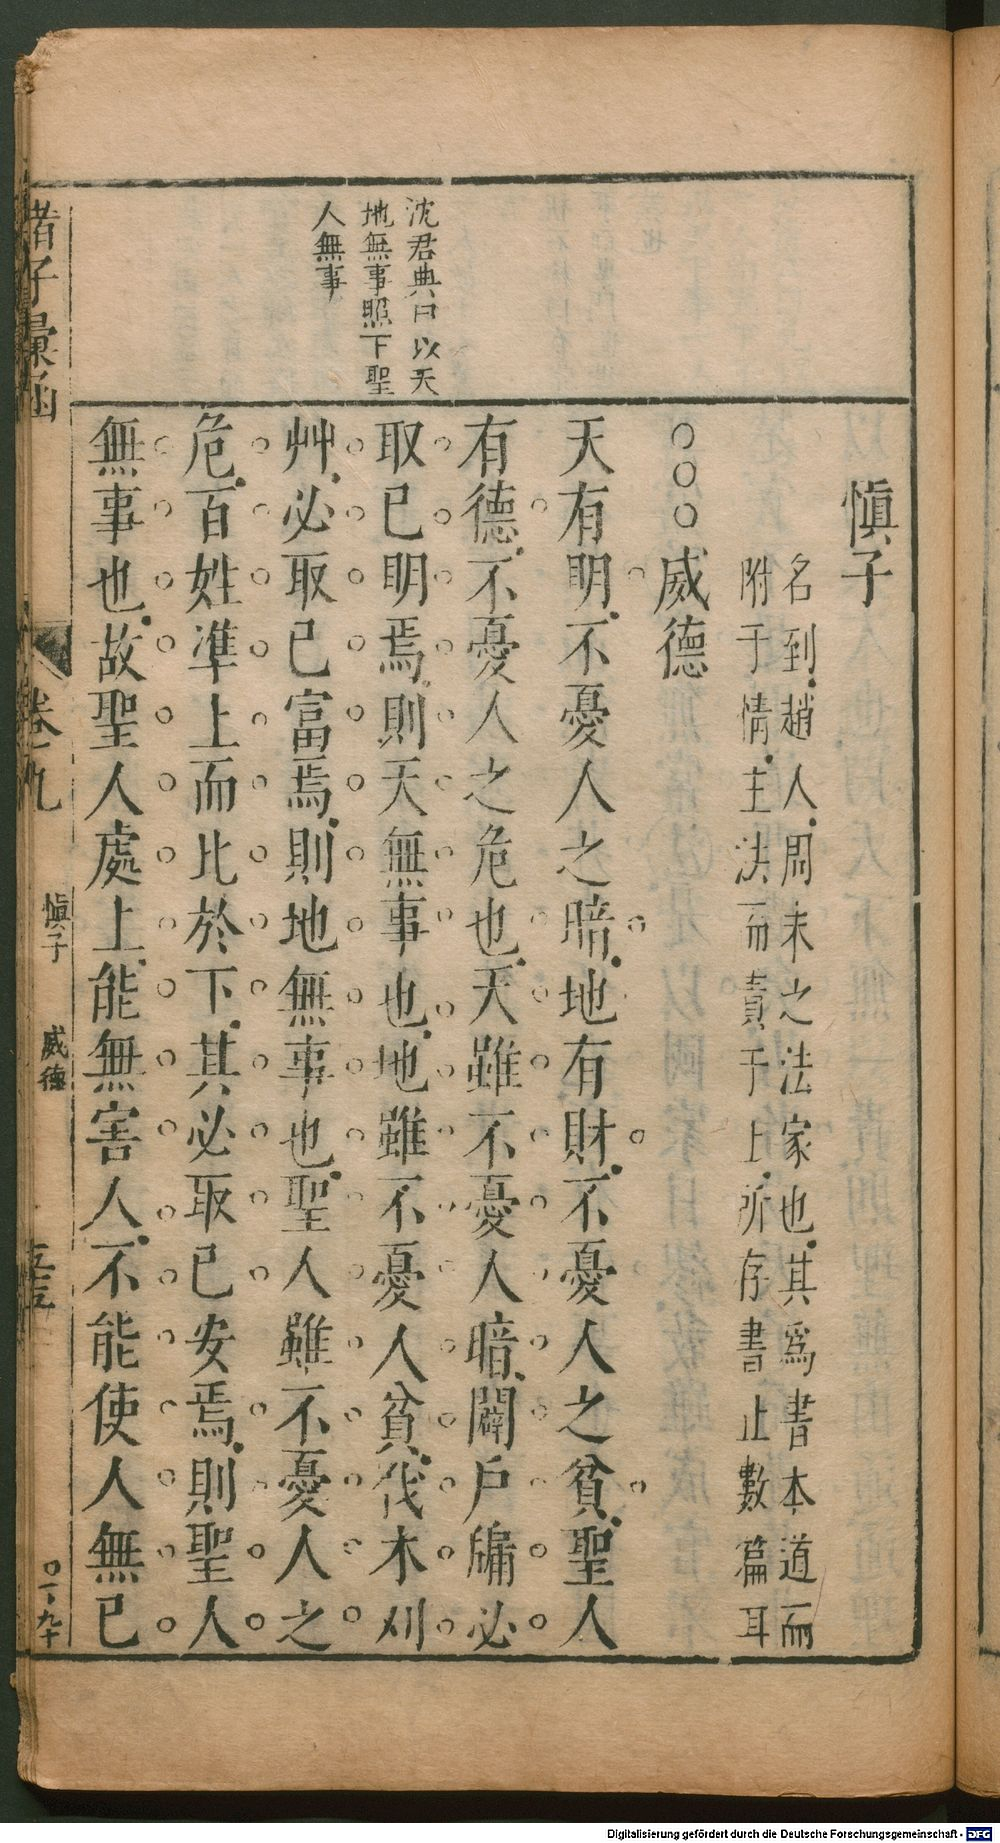 沈君典曰以天
地無事照下聖
人無事
慎子
名到趙人周末之法家也其爲書本道而
附于情主法而責于上所存書止數篇耳
○○○威德
天有明不憂人之暗地有財不憂人之貧聖人
有德不憂人之危也天雖不憂人暗闢戶牖必
取已明焉則天無事也地雖不憂人貧伐木刈
艸必取已富焉則地無事也聖人雖不憂人之
危百姓準上而比於下其必取已安焉則聖人
無事也故聖人處上能無害人不能使人無已
諸子彙函
卷十九
慎子
威德
Digitalisierung gefördert durch die Deutsche Forschungsgemeinschaft - DFG